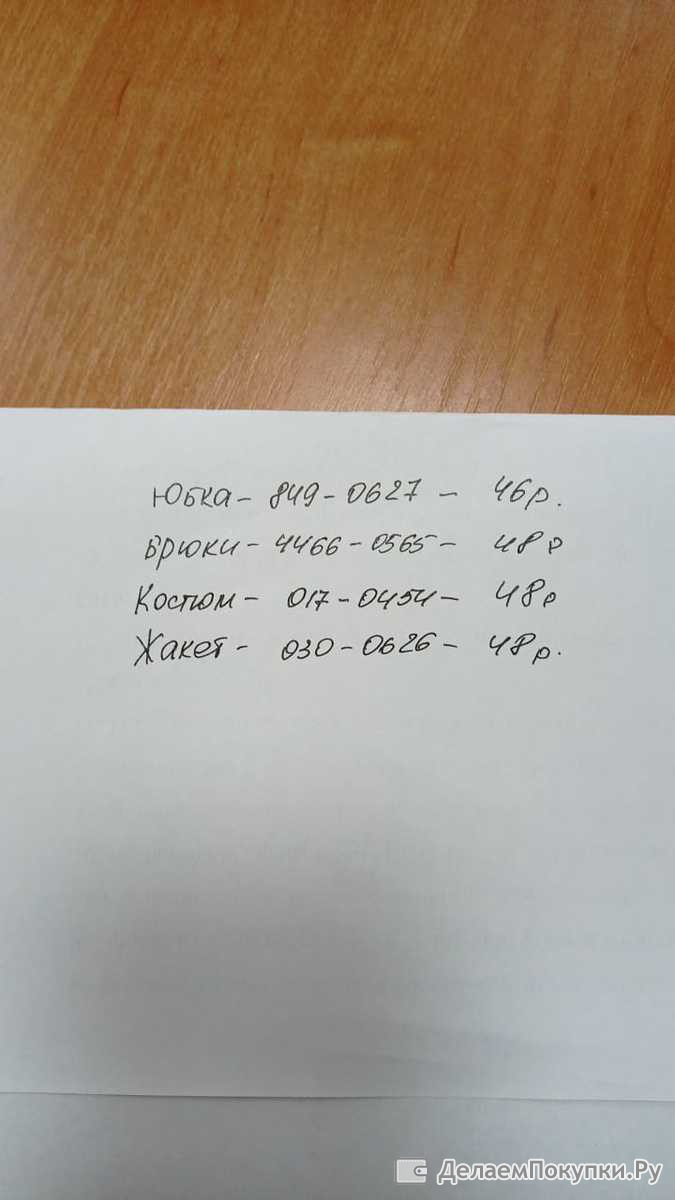 Юбка - 849-0627 - 46р.
Брюки - 4466-0565 - 48р
Костюм - 017-0454 - 48р
Жакет - 030-0626 - 48р.
ДелаемПокупки.Ру